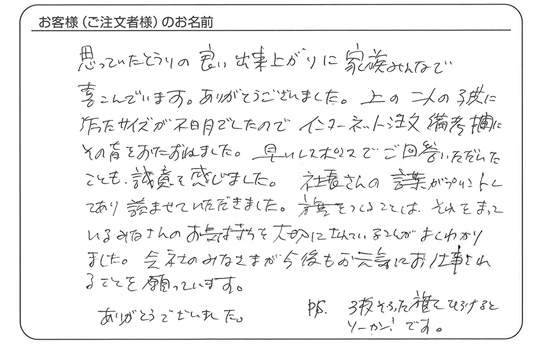 お客様（ご注文者様）のお名前
思っていたとうりの良い出来上がりに家族みんなで
喜こんでいます。ありがとうございました。上の二人の子供に
作ったサイズが不明でしたのでインターネット注文備考欄に
その旨をおたずねしました。早いレスポンスでご回答いただいた
ことも、誠意を感じました。社長さんの言葉がプリントし
てあり読ませていただきました。をつくることは、それをまって
いるみなさんのお気持ちを大切にがよくわかり
ました。会社のみなさまが今後もお元気にお仕事され
ることを願っています。
ありがとうございました。
P.S. 3枚そろった旗でひろげると
ソーカン！です。